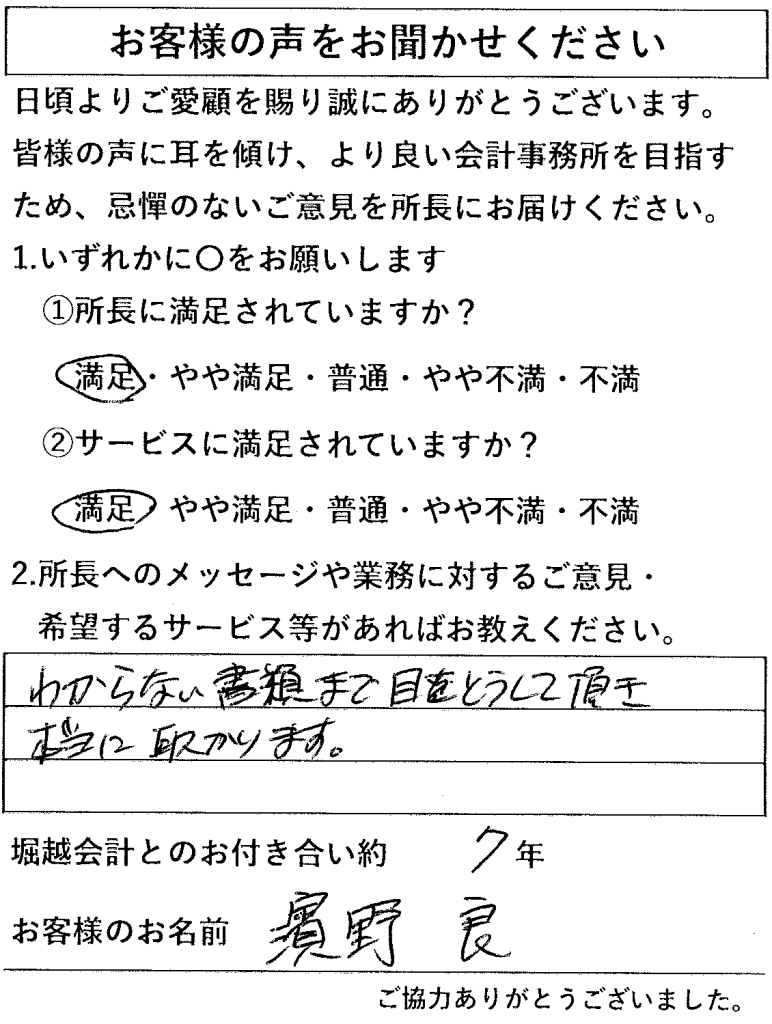 お客様の声をお聞かせください
日頃よりご愛顧を賜り誠にありがとうございます。
皆様の声に耳を傾け、より良い会計事務所を目指す
ため、忌憚のないご意見を所長にお届けください。
1.いずれかに〇をお願いします
①所長に満足されていますか？
満足・やや満足・普通・やや不満・不満
②サービスに満足されていますか？
満足 やや満足・普通・やや不満・不満
2.所長へのメッセージや業務に対するご意見・
希望するサービス等があればお教えください。
わからない書類まで目をとうして頂き
本当に取かります。
堀越会計とのお付き合い約 7年
お客様のお名前 濱野 良
ご協力ありがとうございました。